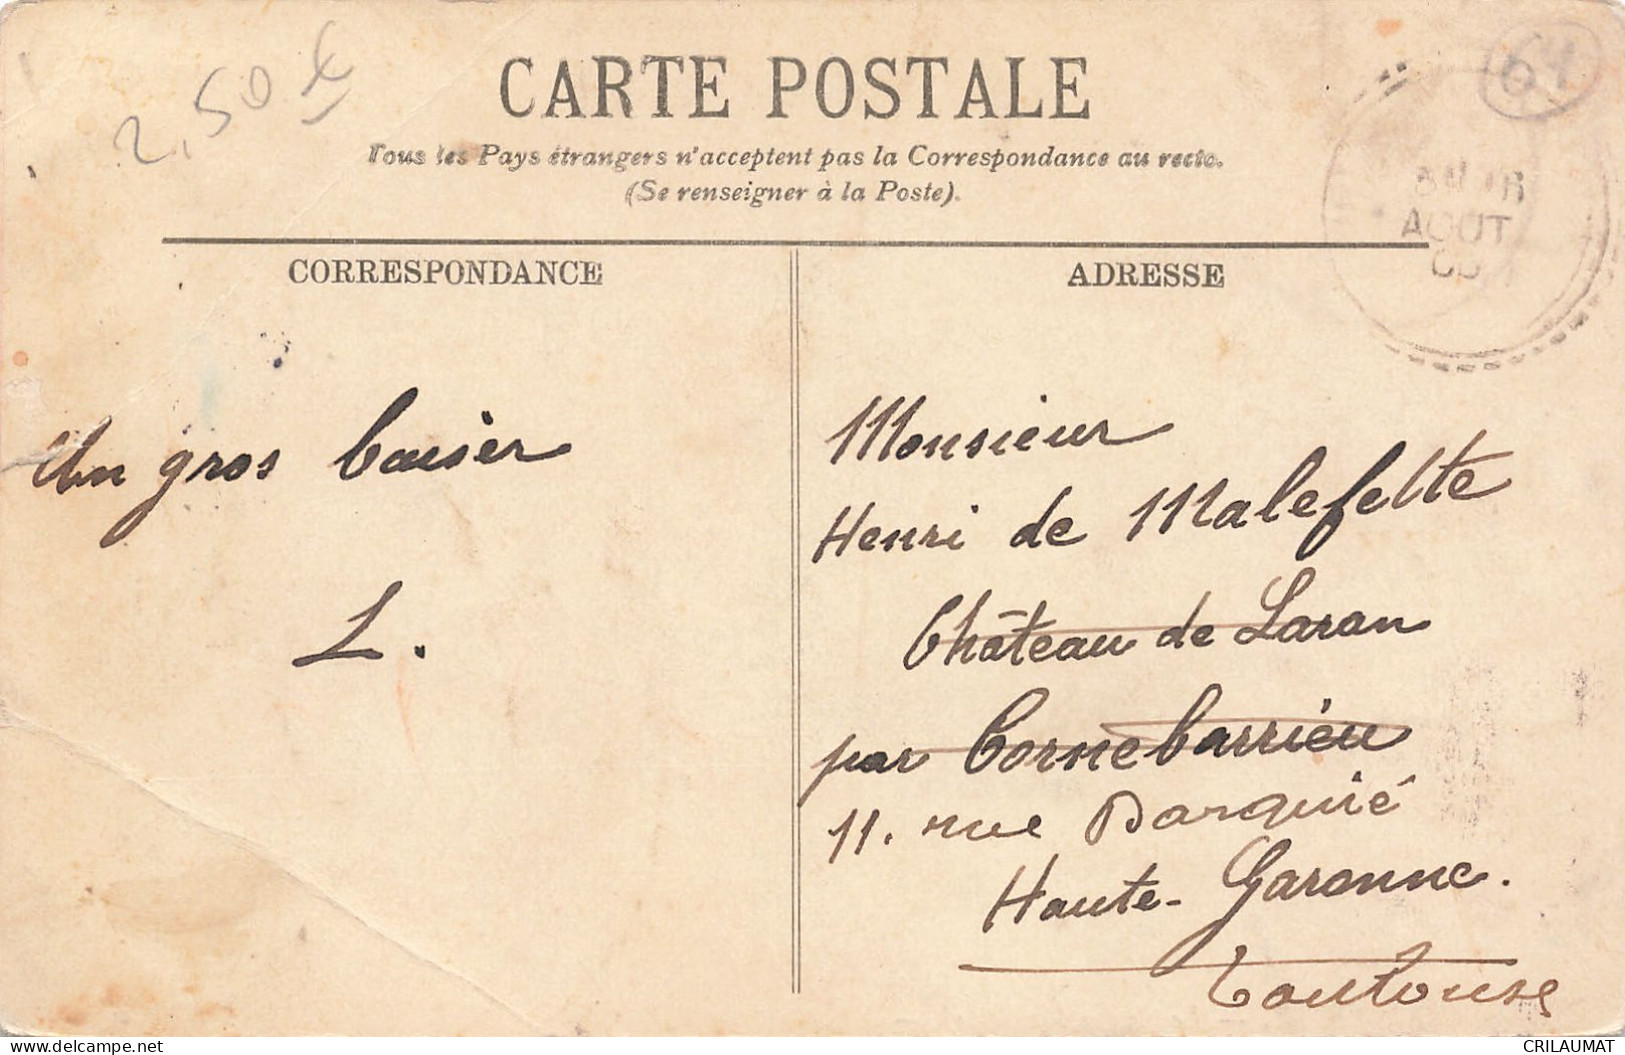 2,50 €
64
CARTE POSTALE
Tous les Pays étrangers n'acceptent pas la Correspondance au recto.
(Se renseigner à la Poste).
AOUT
CORRESPONDANCE
ADRESSE
Un gros baiser
L.
Monsieur
Henri de Malefette
Château de Laran
par Cornebarrieu
11. rue Darquié
Haute-Garonne.
Toulouse
CRILAUMAT